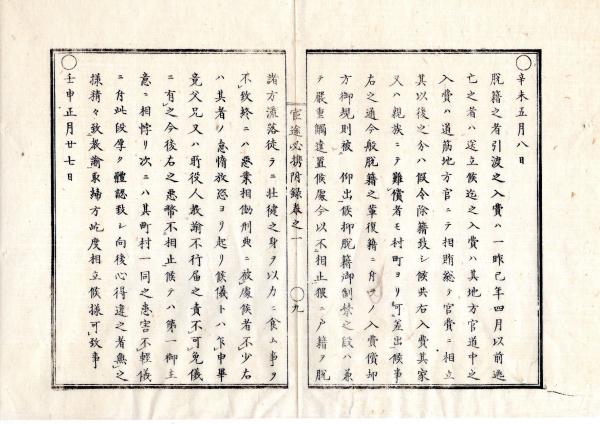 ○辛未五月八日
脱籍之者引渡之入費ハ一昨巳年四月以前逃
亡之者ハ送立候迄之入費ハ其地方官道中之
入費ハ道筋地方官ニテ相賄総テ官費ニ相立
其以後之分ハ假令除籍致シ候共右入費其家
又ハ親族ニテ難償者モ村町ヨリ可差出候事
右之通今般脱籍之輩復籍ニ付テノ入費償却
方御規則被 仰出候抑脱籍御制禁之設ハ兼
テ嚴重觸達置候處今以不相止猥ニ户籍ヲ脱
官途必携附録巻之一 ○九
諸方流落徒ラニ壮健之身ヲ以力ニ食ム事ヲ
不致終ニハ惡業相働刑典ニ被處候者不少右
ハ其者ノ怠惰放恣ヨリ起リ候儀トハ乍申畢
竟父兄又ハ町役人教諭不行届之責不可免儀
ニ有之今後右之惡弊不相止候テハ第一御主
意ニ相悖リ次ニハ其町村一同之患害不輕儀
ニ付此段厚ク體認致シ向後心得違之者無之
樣精々致教諭取締方屹度相立候樣可致事
○壬申正月廿七日